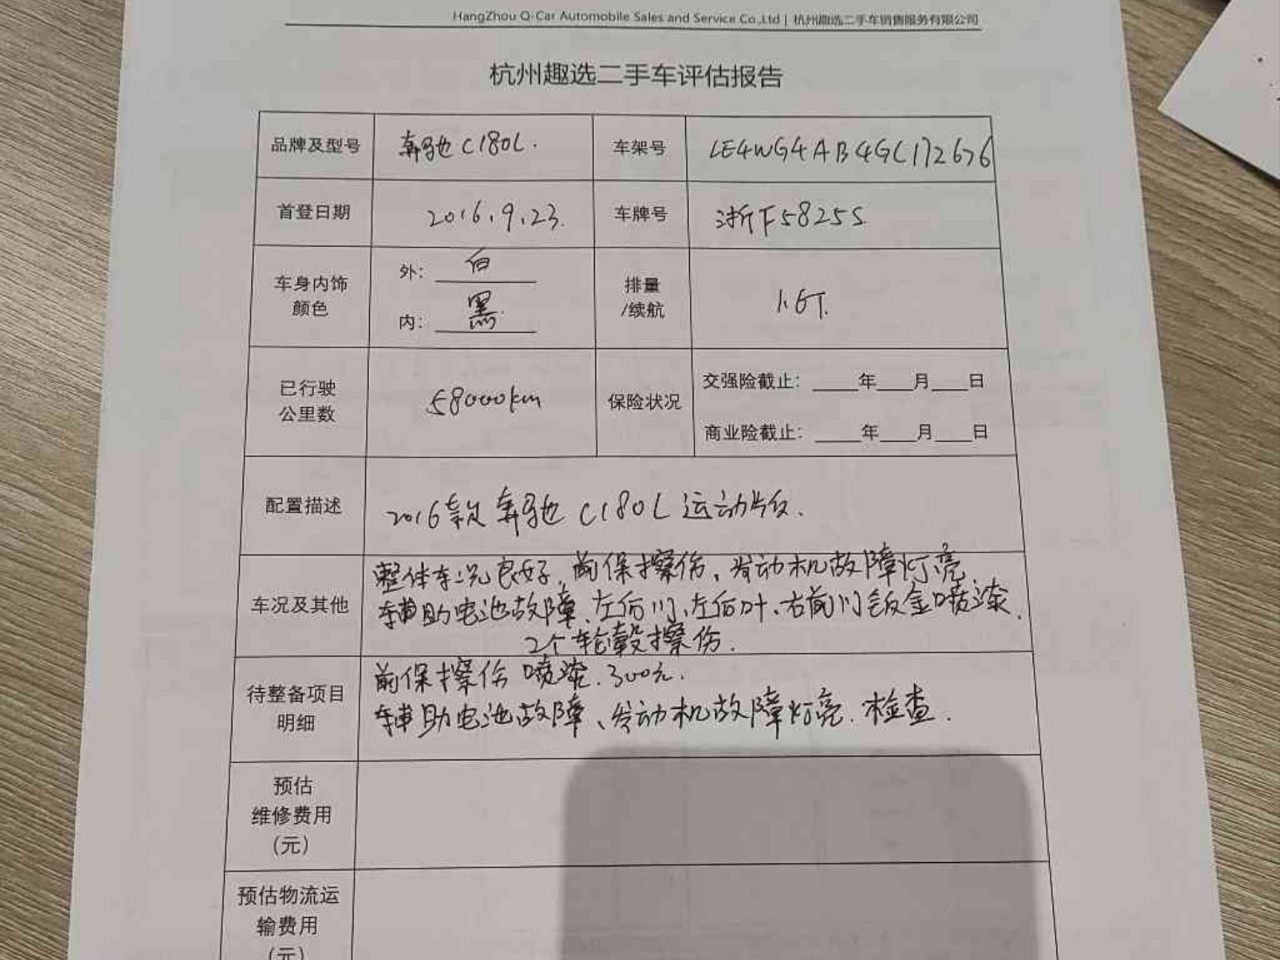 HangZhou Q-Car Automobile Sales and Service Co.,Ltd | 杭州趣选二手车销售服务有限公司
杭州趣选二手车评估报告
品牌及型号 奔驰C180L. 车架号 LE4WG4AB4GL172676
首登日期 2016.9.23. 车牌号 浙F5825S
车身内饰颜色 外: 白 排量/续航 1.6T.
内: 黑
已行驶公里数 58000km 保险状况 交强险截止: ____年___月___日
商业险截止: ____年___月___日
配置描述 2016款奔驰C180L运动版.
车况及其他 整体车况良好,前保擦伤、发动机故障灯亮
辅助电池故障、左后门、左后叶、右前门钣金喷漆.
2个轮毂擦伤.
待整备项目明细 前保擦伤喷漆.300元.
辅助电池故障、发动机故障灯亮.检查.
预估
维修费用
(元)
预估物流运
输费用
(元)